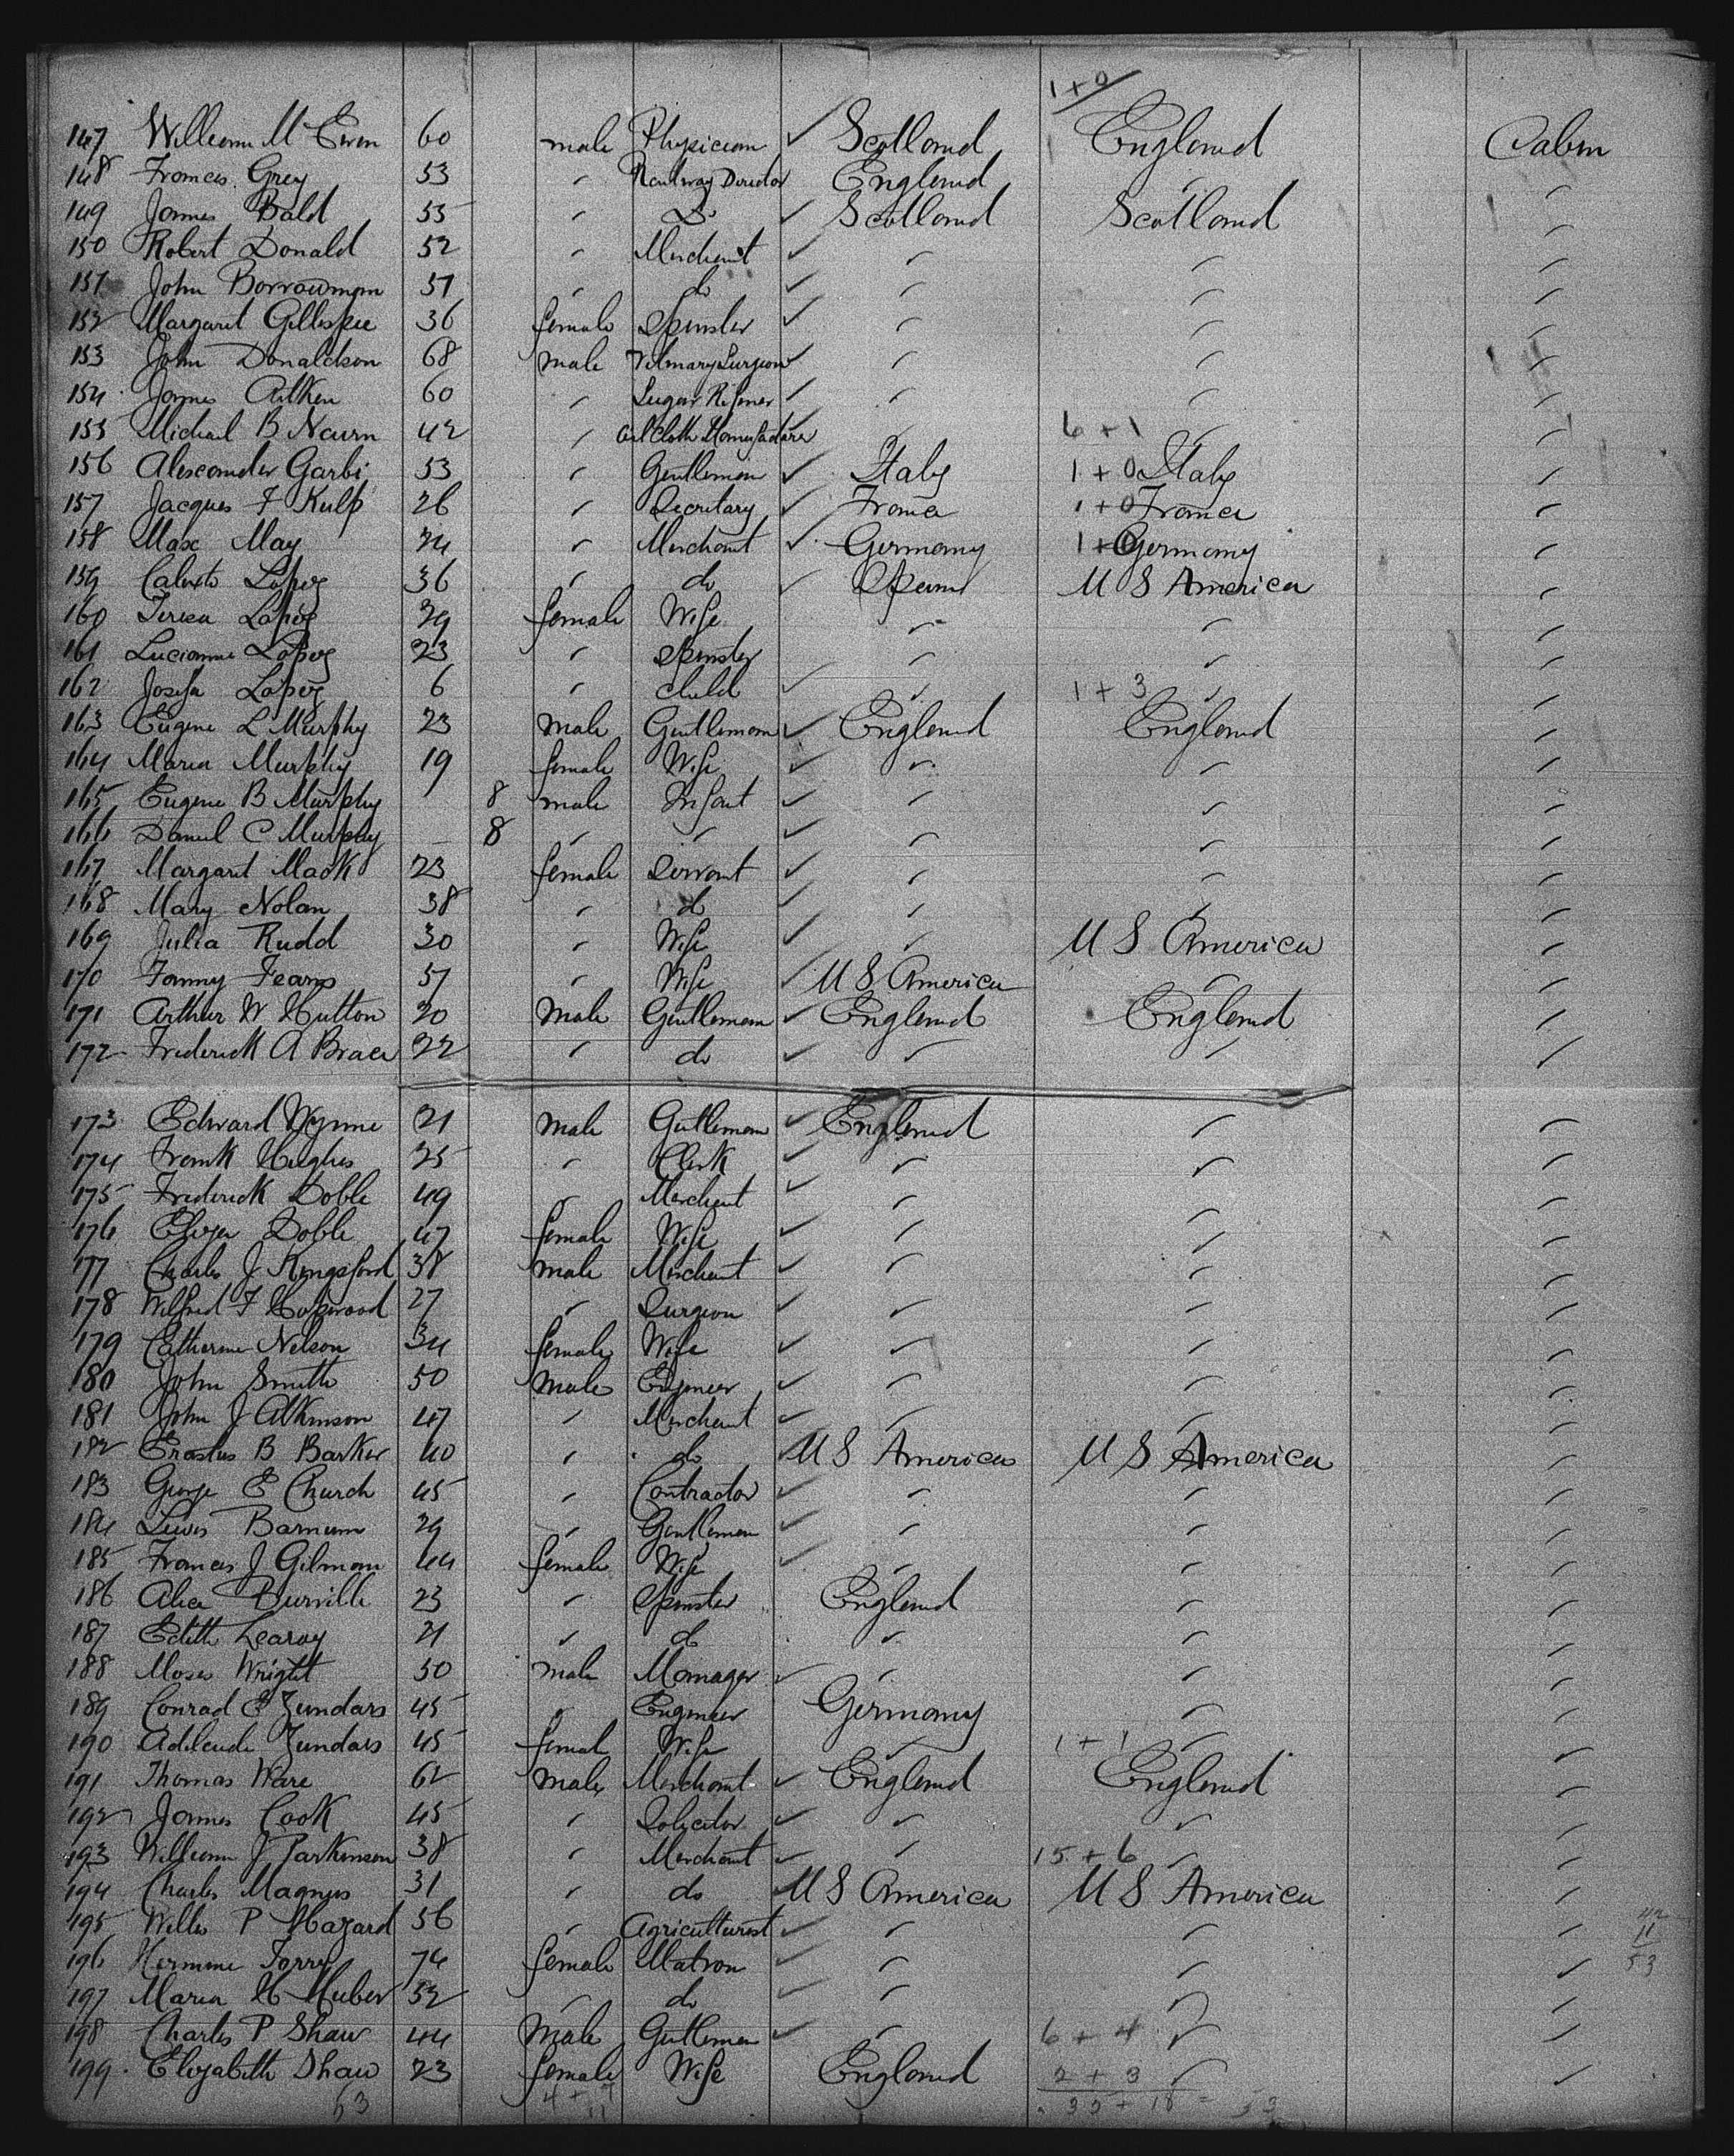 1+0
147 William McEwen 60 male Physician ✓ Scotland England Cabin
148 Frances Grey 53 〃 Railway Director England 〃 〃
149 James Bald 55 〃 Do ✓ Scotland Scotland 〃
150 Robert Donald 52 〃 Merchant ✓ 〃 〃 〃
151 John Borrowman 51 〃 do ✓ 〃 〃 〃
152 Margaret Gillespie 36 female Spinster ✓ 〃 〃 〃
153 John Donaldson 68 male Vetinary Surgeon ✓ 〃 〃 〃
154 James Aitken 60 〃 Sugar Refiner ✓ 〃 〃 〃
155 Michael B Nairn 42 〃 Oil Cloth Manufacturer 〃 6+1 〃 〃
156 Alexander Garbi 53 〃 Gentleman ✓ Italy 1+0 Italy 〃
157 Jacques F Kulp 26 〃 Secretary ✓ France 1+0 France 〃
158 Max May 34 〃 Merchant ✓ Germany 1+0 Germany 〃
159 Calixto Lopez 36 〃 do ✓ Spain U S America 〃
160 Teresa Lopez 29 female Wife 〃 〃 〃
161 Lucianne Lopez 23 〃 Spinster 〃 〃 〃
162 Josefa Lopez 6 〃 Child ✓ 〃 1+3 〃 〃
163 Eugene L Murphy 23 male Gentleman ✓ England England 〃
164 Maria Murphy 19 female Wife ✓ 〃 〃 〃
165 Eugene B Murphy 8 male Infant ✓ 〃 〃 〃
166 Daniel C Murphy 8 〃 〃 ✓ 〃 〃 〃
167 Margaret Mack 23 female Servant ✓ 〃 〃 〃
168 Mary Nolan 38 〃 do ✓ 〃 〃 〃
169 Julia Rudd 30 〃 Wife ✓ 〃 U S America 〃
170 Fanny Fearns 51 〃 Wife ✓ U S America 〃 〃
171 Arthur W Hutton 20 Male Gentleman ✓ England England 〃
172 Frederick A Brace 22 〃 do ✓ 〃 〃 〃
173 Edward Wynne 21 male Gentleman ✓ England 〃 〃
174 Frank Hughes 25 〃 Clerk ✓ 〃 〃 〃
175 Frederick Doble 49 〃 Merchant ✓ 〃 〃 〃
176 Eliza Doble 47 female Wife ✓ 〃 〃 〃
177 Charles J Kingsford 38 male Merchant ✓ 〃 〃 〃
178 Wilfred F Hopwood 27 〃 Surgeon ✓ 〃 〃 〃
179 Catherine Nelson 34 female Wife ✓ 〃 〃 〃
180 John Smith 50 Male Engineer ✓ 〃 〃 〃
181 John J Atkinson 47 〃 Merchant ✓ 〃 〃 〃
182 Erastus B Barker 40 〃 do ✓ U S America U S America 〃
183 George E Church 45 〃 Contractor ✓ 〃 〃 〃
184 Lewis Barnum 29 〃 Gentleman ✓ 〃 〃 〃
185 Frances J Gilman 44 female Wife ✓ 〃 〃 〃
186 Alice Burville 23 〃 Spinster England 〃 〃
187 Edith Learoy 21 〃 do 〃 〃 〃
188 Moses Wright 50 male Manager ✓ 〃 〃 〃
189 Conrad E Zundars 45 〃 Engineer Germany 〃 〃
190 Adelaide Zundars 45 female Wife 〃 1+1 〃 〃
191 Thomas Ware 62 male Merchant ✓ England England 〃
192 James Cook 45 〃 Solicitor ✓ 〃 〃 〃
193 William J Parkinson 38 〃 Merchant ✓ 〃 15+6 〃 〃
194 Charles Magnus 31 〃 do ✓ U S America U S America 〃
195 Willis P Hazard 56 〃 Agriculturist ✓ 〃 〃 〃 42
11
196 Hermine Torry 74 female Matron ✓ 〃 〃 〃 53
197 Maria H Huber 52 〃 do ✓ 〃 〃 〃
198 Charles P Shaw 44 Male Gentleman ✓ 〃 6+4 〃 〃
199 Elizabeth Shaw 23 female Wife England 2+3 〃 〃
53 4+7 35+18=53
11